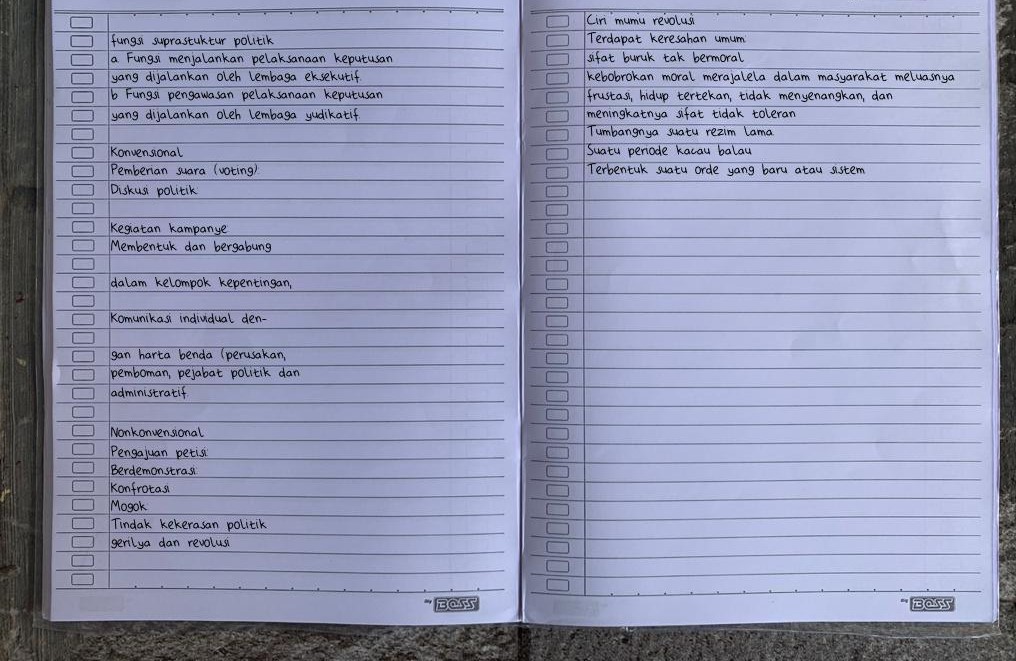 fungsi suprastuktur politik
a Fungsi menjalankan pelaksanaan keputusan
yang dijalankan oleh lembaga eksekutif.
b Fungsi pengawasan pelaksanaan keputusan
yang dijalankan oleh lembaga yudikatif.
Konvensional
Pemberian suara (voting)
Diskusi politik
Kegiatan kampanye
Membentuk dan bergabung
dalam kelompok kepentingan,
Komunikasi individual den-
gan harta benda (perusakan,
pemboman, pejabat politik dan
administratif
Nonkonvensional
Pengajuan petisi
Berdemonstrasi
Konfrotasi
Mogok
Tindak kekerasan politik
gerilya dan revolusi
my BOSS
Ciri mumu revolusi
Terdapat keresahan umum
sifat buruk tak bermoral
kebobrokan moral merajalela dalam masyarakat meluasnya
frustasi, hidup tertekan, tidak menyenangkan, dan
meningkatnya sifat tidak toleran
Tumbangnya suatu rezim lama
Suatu periode kacau balau
Terbentuk suatu orde yang baru atau sistem
my BOSS